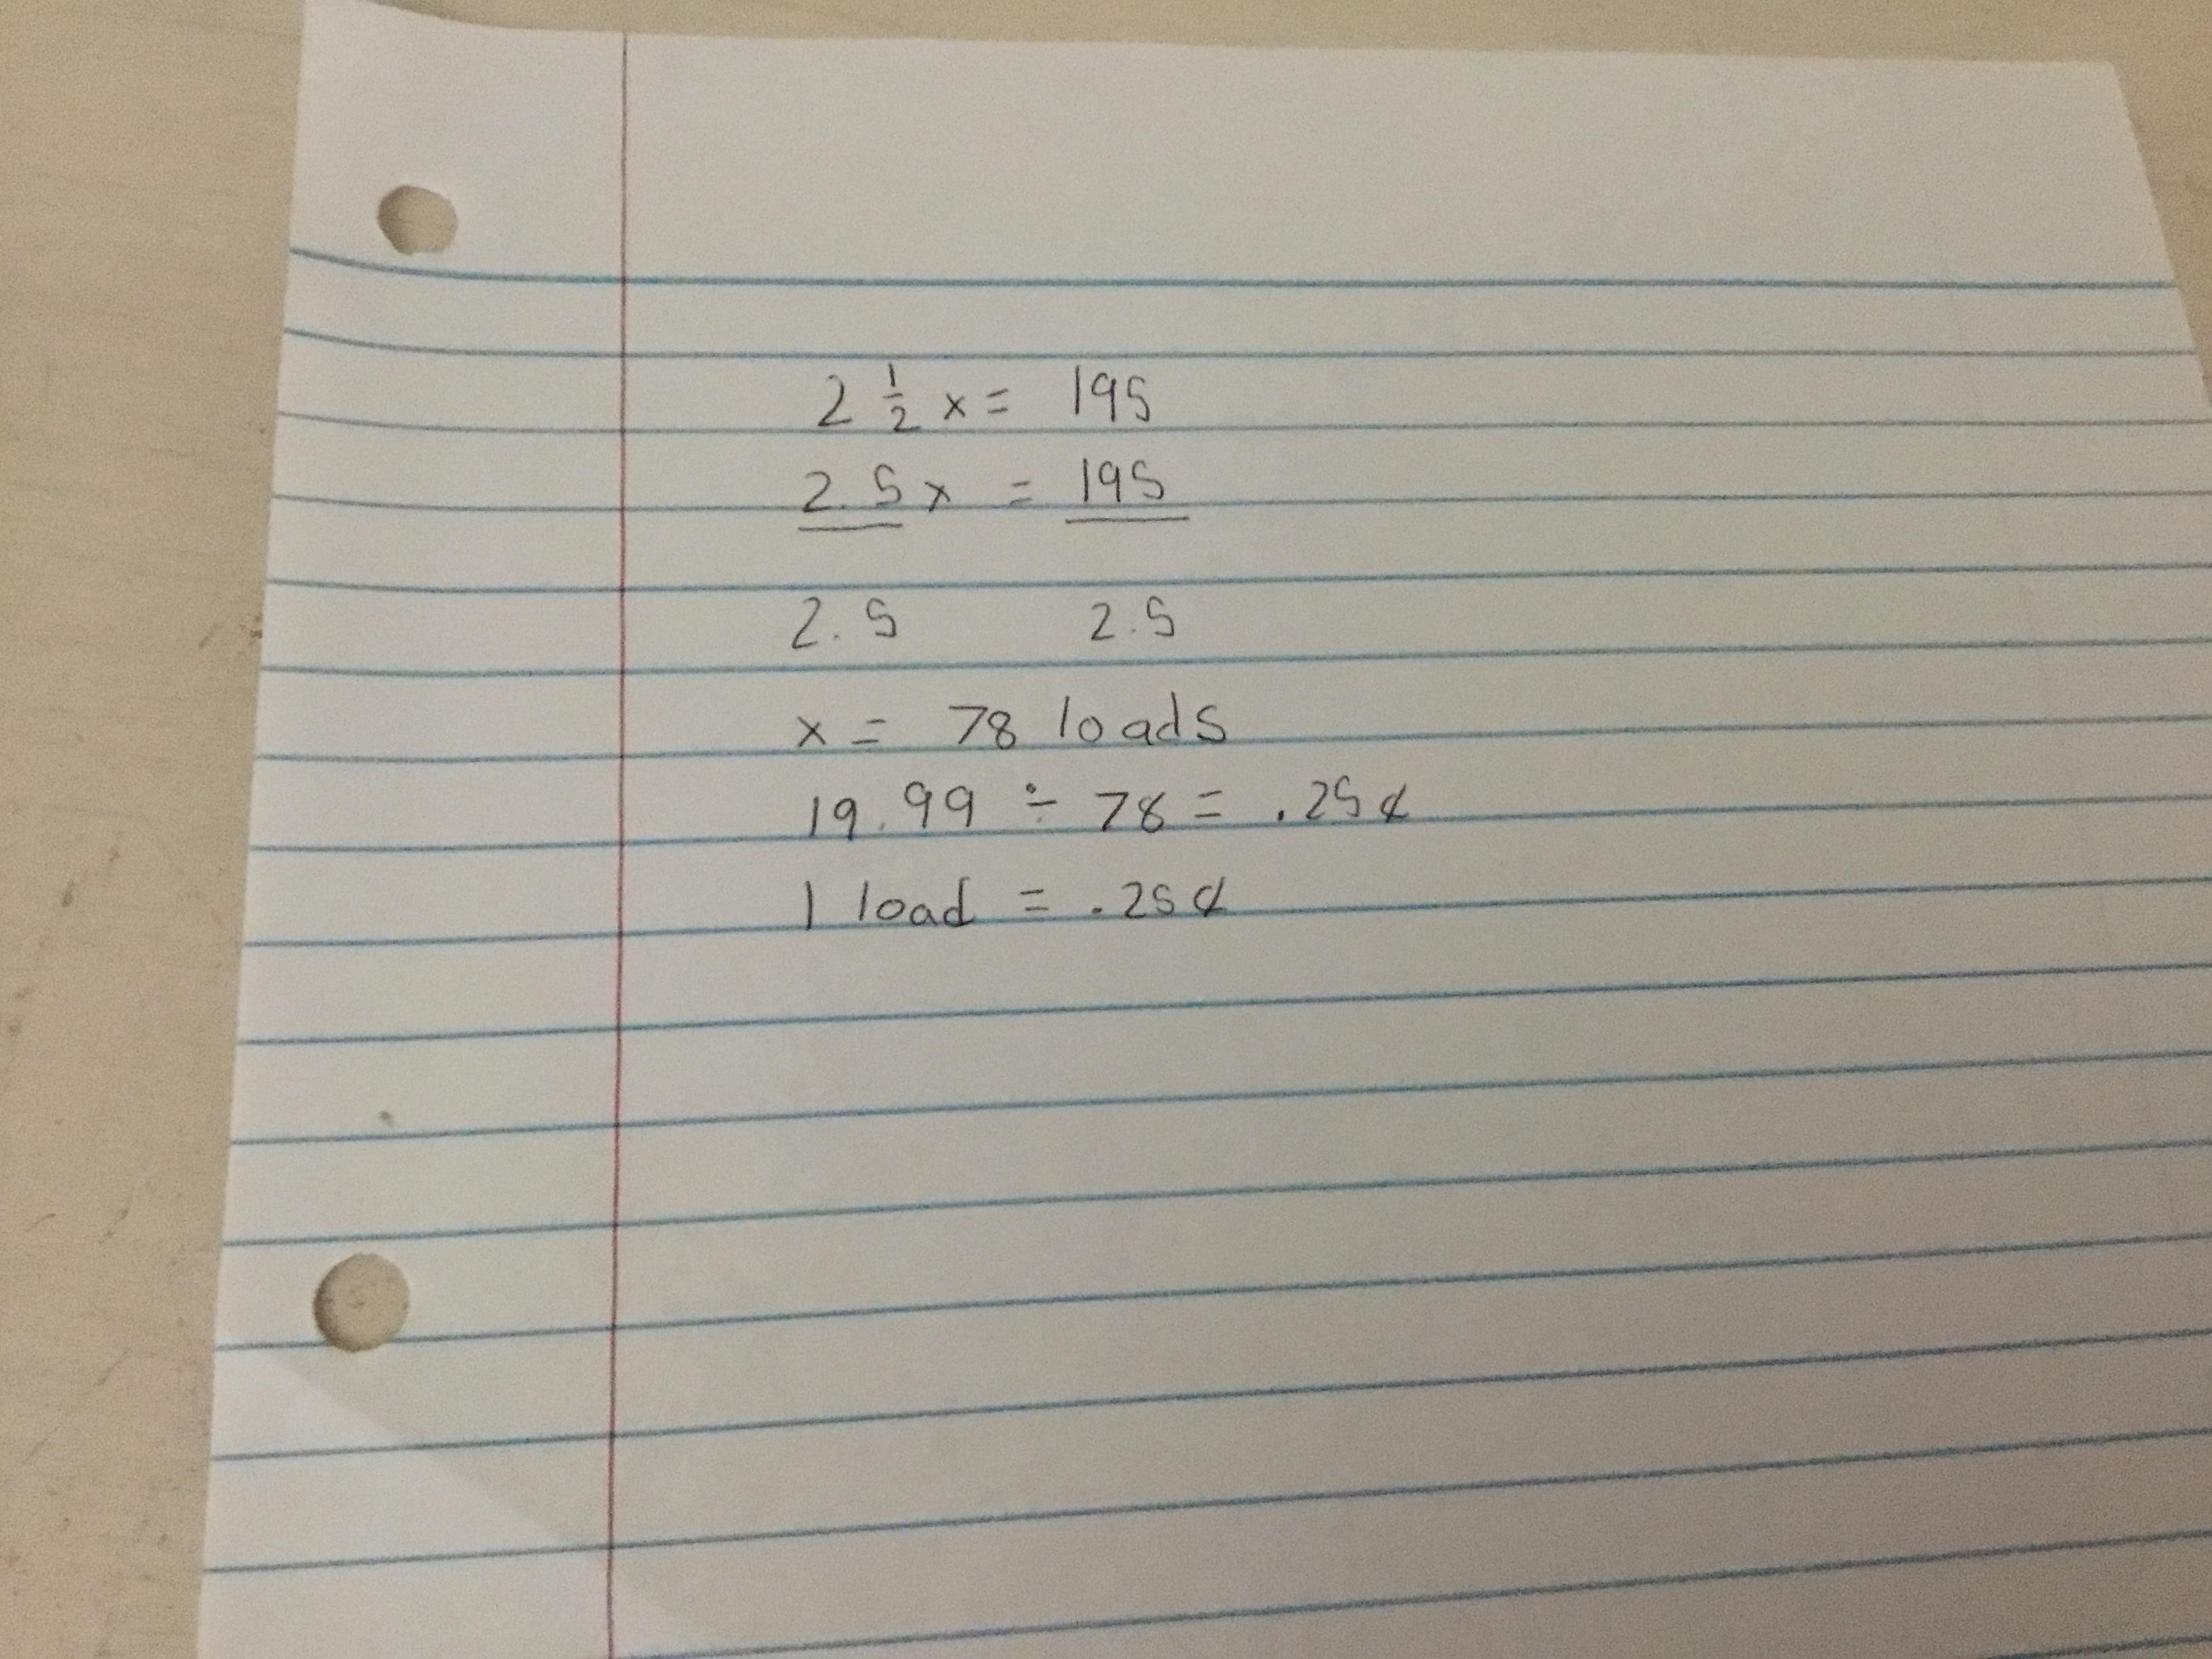 2 1/2 x = 195
2.5x = 195
2.5 2.5
x = 78 loads
19.99 ÷ 78 = .25¢
1 load = .25¢